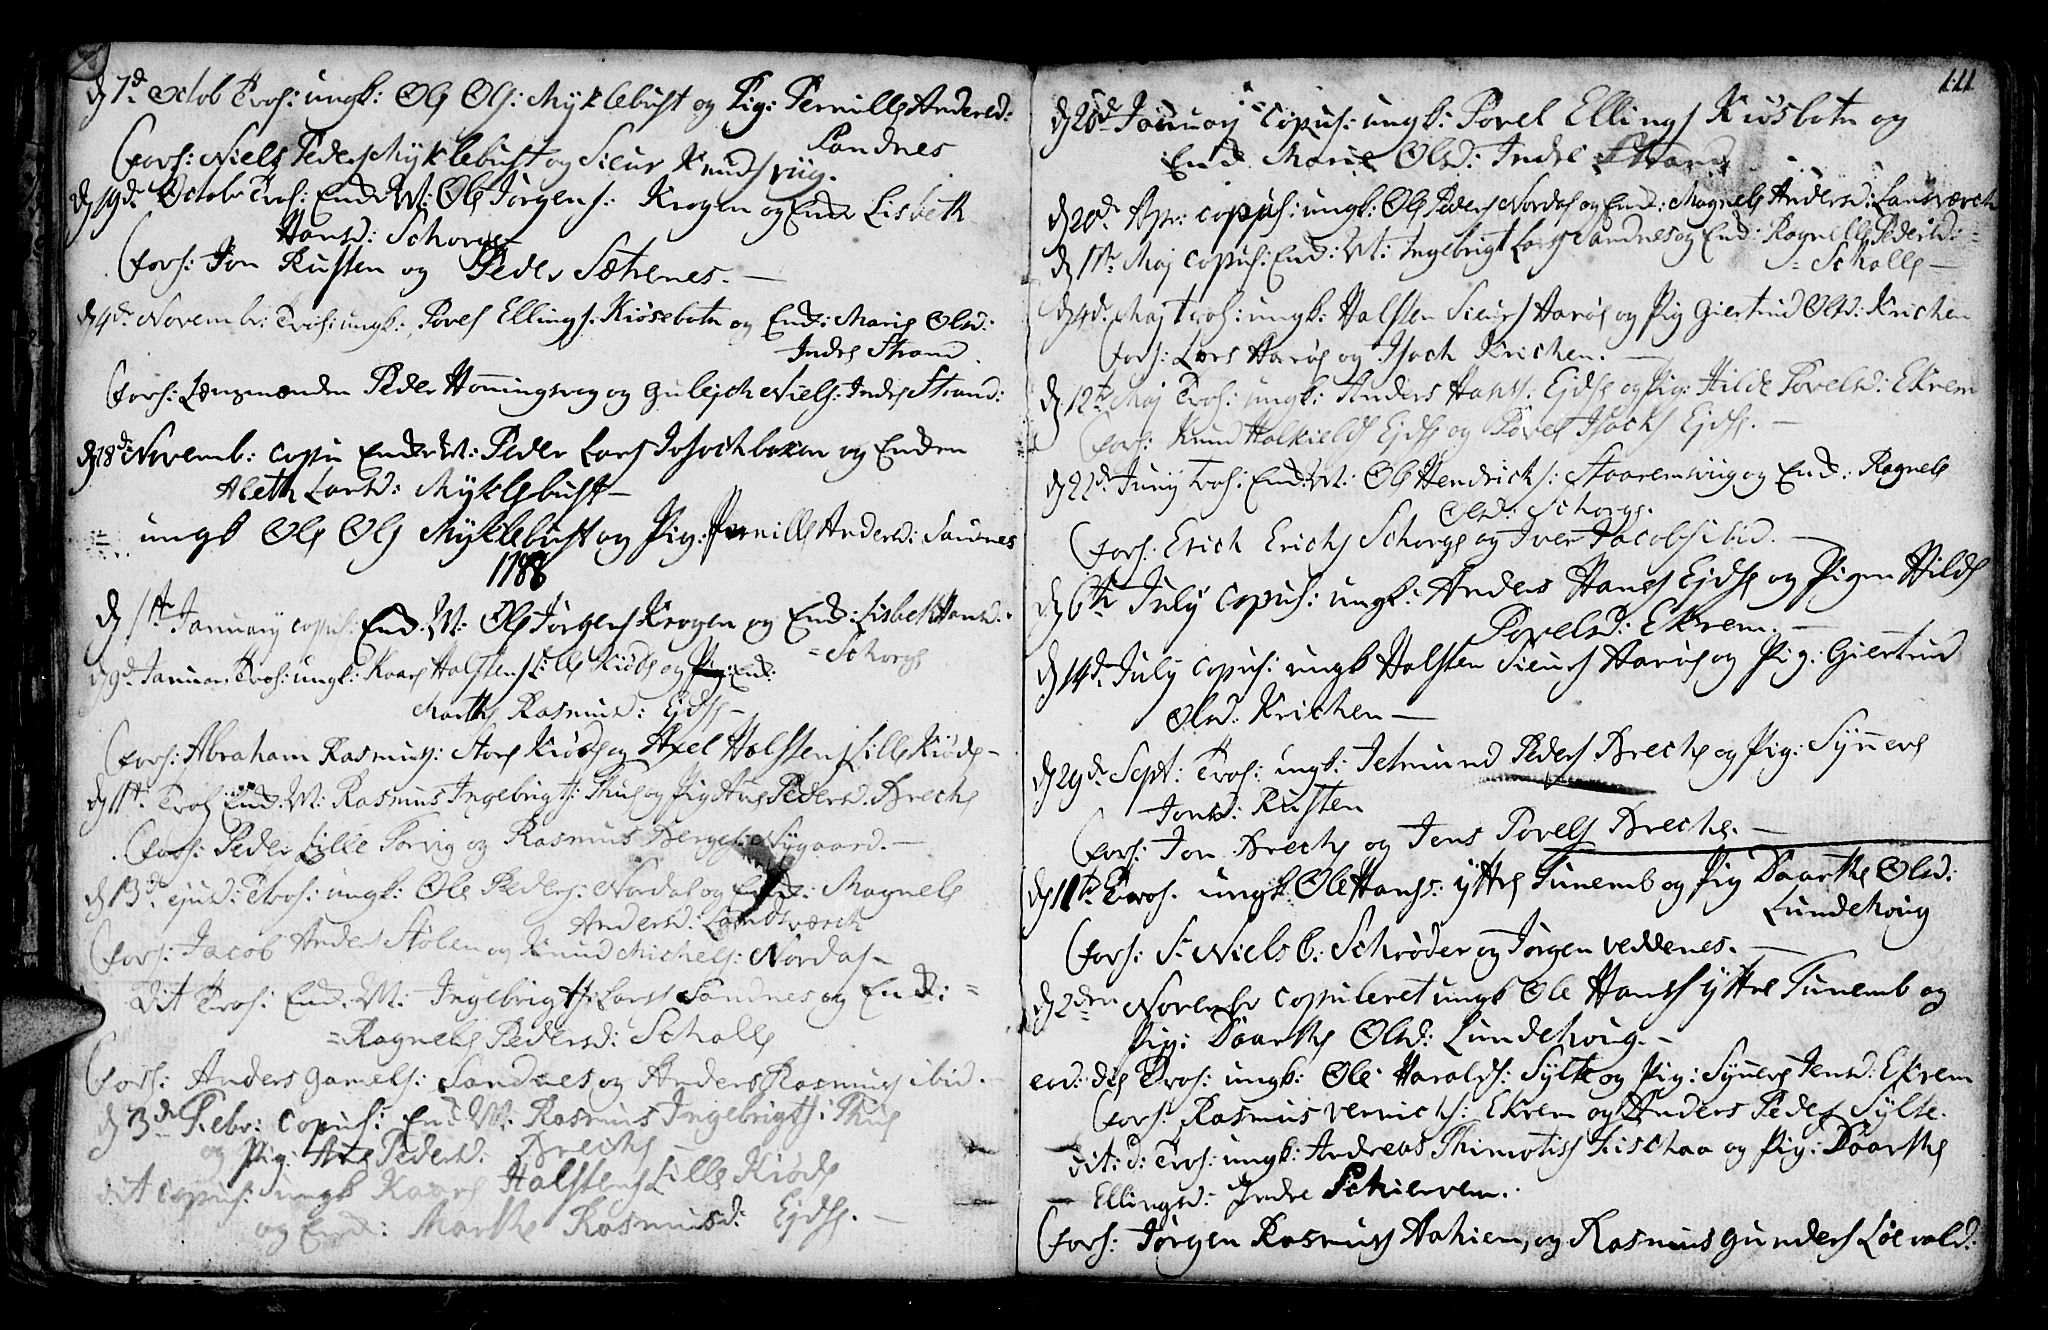 d 7d Octob Trol: ungk: Ole Ols: Myklebust og Pig: Pernille Andersd:
Sandnes
(forl: Niels Peders Myklebust og Siur Knuds viig.
d 19de Octobr Trol: Enk M: Ole Jørgens: Krogen og Enke Lisbeth
Hansd: Schorge
(forl: Jon Rusten og Peder Sætrenes. —
d 4de Novembr: Trol: ungk: Povel Ellings: Kiøsebotn og Enk: Marie Olsd:
Indre Strand.
(forl: Lænsmanden Peder Honningsvog og Gulejch Niels: Indre Strand:
d 18de Novemb: copu Enke M: Peder Lars og Enken
Aleth Larsd: Myklebust —
ungk Ole Ols Myklebust og Pig: Pernille Andersd: Sandnes
1788
d 1ste January copul: Enk. M: Ole Jørgens Krogen og Enk: Lisbeth Hansd:
= Schorge
d 9de Januar: Trol: ungk: Kaare Halstens Lille Kiøde og Pig: Enk:
Marthe Rasmusd: Ejdse —
(forl: Abraham Rasmus: Store Kiøde og Axel Halstens Lille Kiøde —
d 11te Trol Enk. M: Rasmus Ingebrigts: Thue og Pig Ane Pedersd. Breche
(forl: Peder Lille Torvig og Rasmus Berges: Nygaard. —
d 13de ejusd: Trol: ungk: Ole Peders: Nordal og Enk: Magnele
Andersd: Landsværch
(forl: Jacob Anders Stølen og Knud Michels: Nordal —
Dit Trol: Enk. M: Ingebrigt Lars Sandnes og Enk: =
= Ragnele Pedersd: Scholle
(forl: Anders Gamels: Sandnes og Anders Rasmus ibid. —
d 3de Febr: copul: Enk M: Rasmus Ingebrigts: Thue
og Pig: Ane Pedersd: Breche —
dit copul: ungk Kaare Halstens Lille Kiøde
og Enk: Marthe Rasmusd: Ejdse. —
111
d 20de January copul: ungk: Povel Ellings Kiøsbotn og
Enk Marie Olsd: Indre Strand
d 20de Apr: copul: ungk: Ole Peders Nordal og Enk: Magnele Andersd: Landsværch
d 1ste Maj copul: Enk: M: Ingebrigt Lars Sandnes og Enk: Ragnele Pedersd: =
= Scholle —
d 4de Maj Trol: ungk: Halsten Siurs Harøe og Pig Giertrud Olsd: Krichen
(forl: Lars Harøe og Isach Krichen. —
d 12te Maj Trol: ungk: Anders Hans: Ejdse og Pig: Hilde Povelsd: Ekrem
(forl: Knud Halkields Ejdse og Povel Isachs Ejdse. —
d 22de Juny Trol: Enk: M: Ole Hendrichs: Staaremsviig og Enk: Ragnele
Olsd: Schorge.
(forl: Erich Erichs Schorge og Iver Jacobs ibid. —
d 6te July copul: ungk: Anders Hans Ejdse og Pigen Hilde
Povelsd: Ekrem. —
d 14de July copul: ungk Halsten Siurs Harøe og Pig: Giertrud
Olsd: Krichen —
d 29de Sept: Trol: ungk: Jetmund Peders Breche og Pig: Synneve
Jonsd: Rusten
(forl: Jon Breche og Jens Povels Breche. —
d 11te Trol: ungk: Ole Hans: ÿttre Tunemb og Pig Daarthe Olsd:
Lundehoug
(forl: Sr Niels B: Schrøder og Jørgen Veddenes. —
d 2den Novembr copuleret ungk Ole Hans ÿttre Tunemb og
Pig: Daarthe Olsd: Lundehoug. —
eod: die Trol: ungk: Ole Haralds: Sylte og Pig: Synneve Jensd: Ekrem
(forl: Rasmus Vernichs: Ekrem og Anders Peders Sylte.
— dit: d: Trol: ungk: Andreas Thimotiss Fischaa og Pig: Daarthe
— Ellingsd: Indre Schierven.
(forl: Jørgen Rasmus Aahiem, og Rasmus Gunders Løevold: